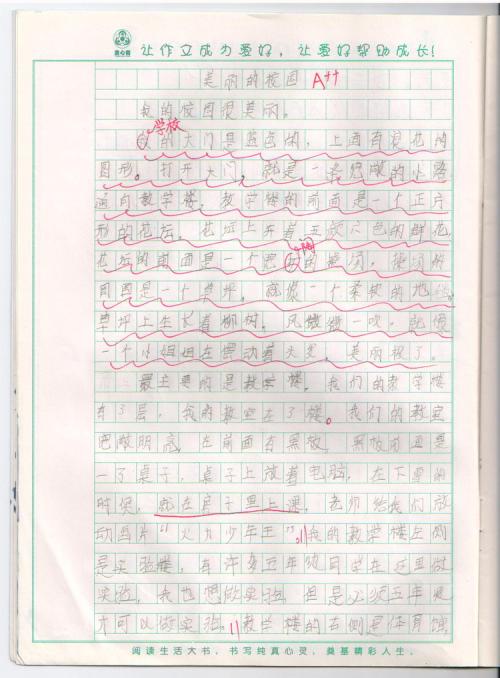 让作文成为爱好，让爱好帮助成长！
美丽的校园 A++
我的校园很美丽。
学校的大门是蓝色的，上面有浪花的
图形。打开大门，就是一条宽敞的小路
通向教学楼。教学楼的前面是一个正方
形的花坛。花坛上开着五颜六色的鲜花，
花坛的前面是一个宽阔的操场，操场的
周围是一个草坪。就像一个柔软的地毯。
草坪上生长着柳树。风微微一吹，就像
一个小姐姐在摆动着头发，美丽极了。
最主要的是教学楼。我们的教学楼
有3层，我的教室在3楼。我们的教室
宽敞明亮，在前面有黑板，黑板前面是
一个桌子，桌子上放着电脑，在下雨的
时候，就在房子里上课，老师给我们放
动画片“火力少年王”。我的教学楼左侧
是实验楼，有许多五年级同学在这里做
实验，我也想做实验，但是必须五年级
才可以做实验。教学楼的右侧是体育馆，
阅读生活大书，书写纯真心灵，奠基精彩人生。